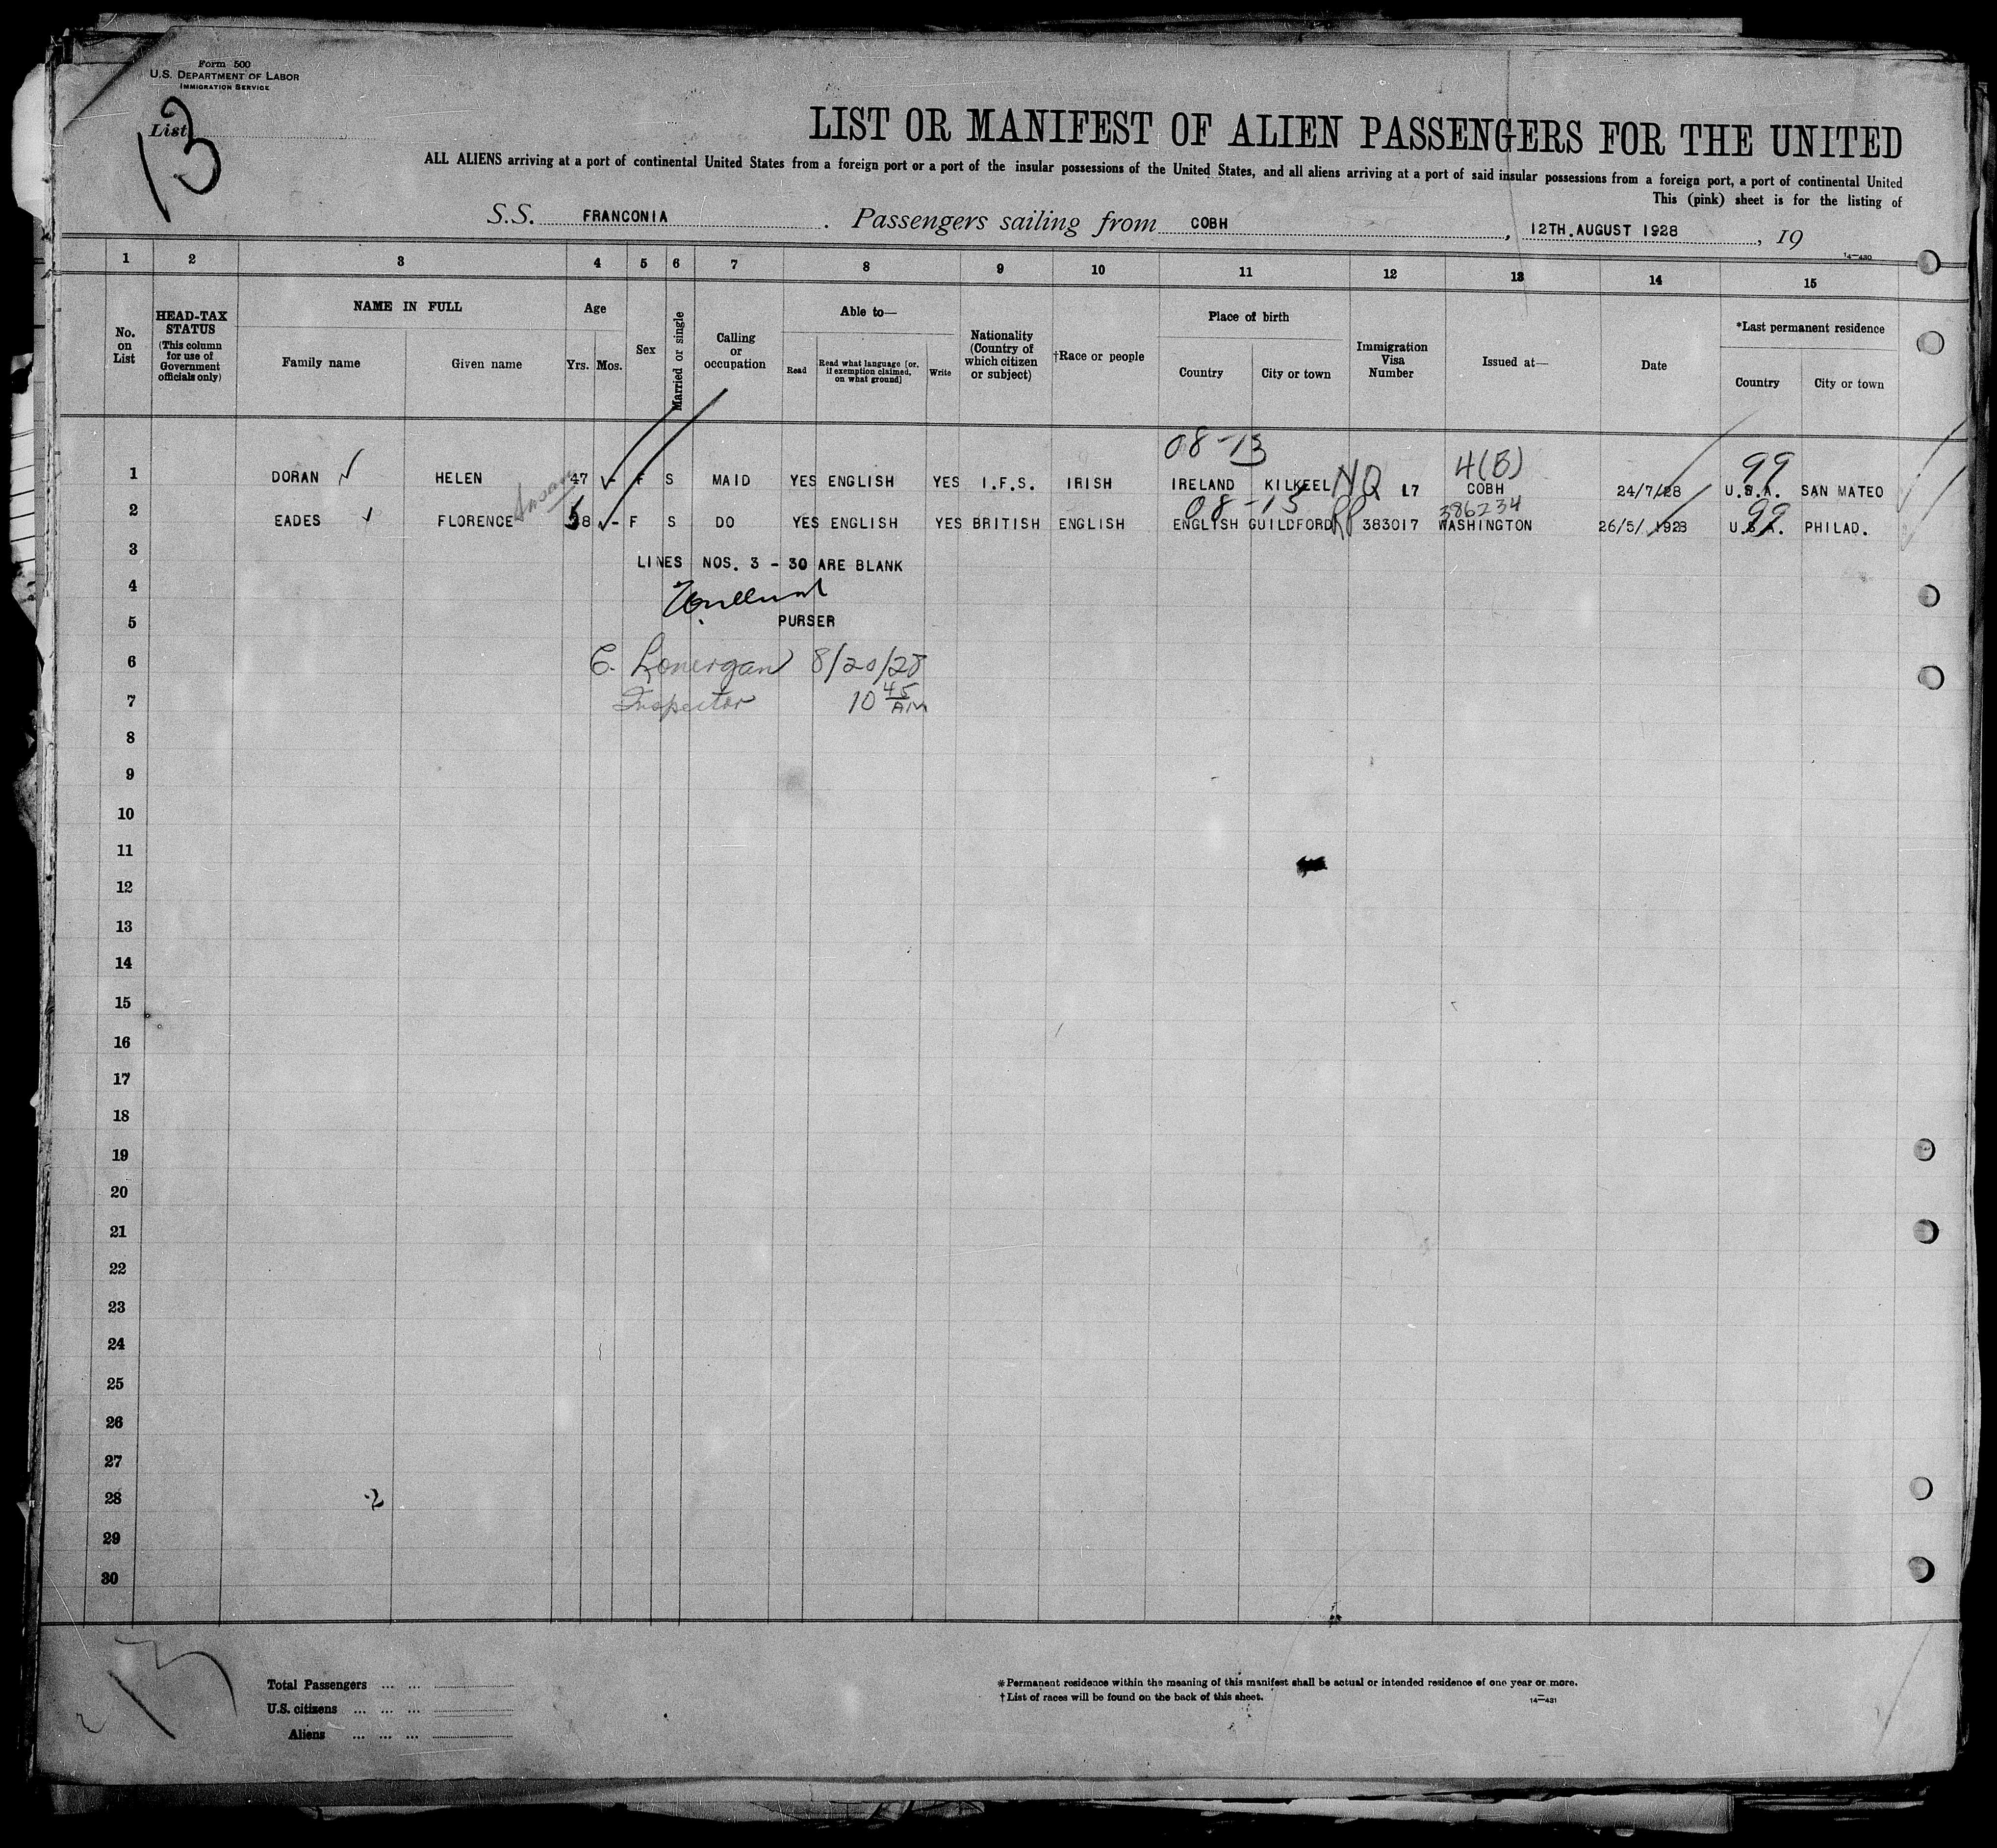 Form 500
U.S. DEPARTMENT OF LABOR
IMMIGRATION SERVICE
List 13
LIST OR MANIFEST OF ALIEN PASSENGERS FOR THE UNITED
ALL ALIENS arriving at a port of continental United States from a foreign port or a port of the insular possessions of the United States, and all aliens arriving at a port of said insular possessions from a foreign port, a port of continental United
This (pink) sheet is for the listing of
S.S. FRANCONIA. Passengers sailing from COBH, 12TH.AUGUST 1928, 19
14—430
1 2 3 4 5 6 7 8 9 10 11 12 13 14 15
No. on List
HEAD-TAX STATUS (This column for use of Government officials only)
NAME IN FULL
Family name Given name
Age
Yrs. Mos.
Sex
Married or single
Calling or occupation
Able to—
Read
Read what language [or, if exemption claimed, on what ground]
Write
Nationality (Country of which citizen or subject)
†Race or people
Place of birth
Country City or town
Immigration Visa Number
Issued at—
Date
*Last permanent residence
Country City or town
08-13 4(B) 99
1 DORAN HELEN 47 - F S MAID YES ENGLISH YES I.F.S. IRISH IRELAND KILKEEL NQ 17 COBH 24/7/28 U.S.A. SAN MATEO
08-13 386234 99
2 EADES FLORENCE 58 - F S DO YES ENGLISH YES BRITISH ENGLISH ENGLISH GUILDFORD RP 383017 WASHINGTON 26/5/.1928 U.S.A. PHILAD.
3 LINES NOS. 3 - 30 ARE BLANK
4
5 PURSER
6 C. Lonergan 8/20/28
7 Inspector 10 45 AM
8
9
10
11
12
13
14
15
16
17
18
19
20
21
22
23
24
25
26
27
28 2
29
30
13
Total Passengers ... ...
U.S. citizens ... ... ...
Aliens ... ... ...
*Permanent residence within the meaning of this manifest shall be actual or intended residence of one year or more.
†List of races will be found on the back of this sheet.
14—431